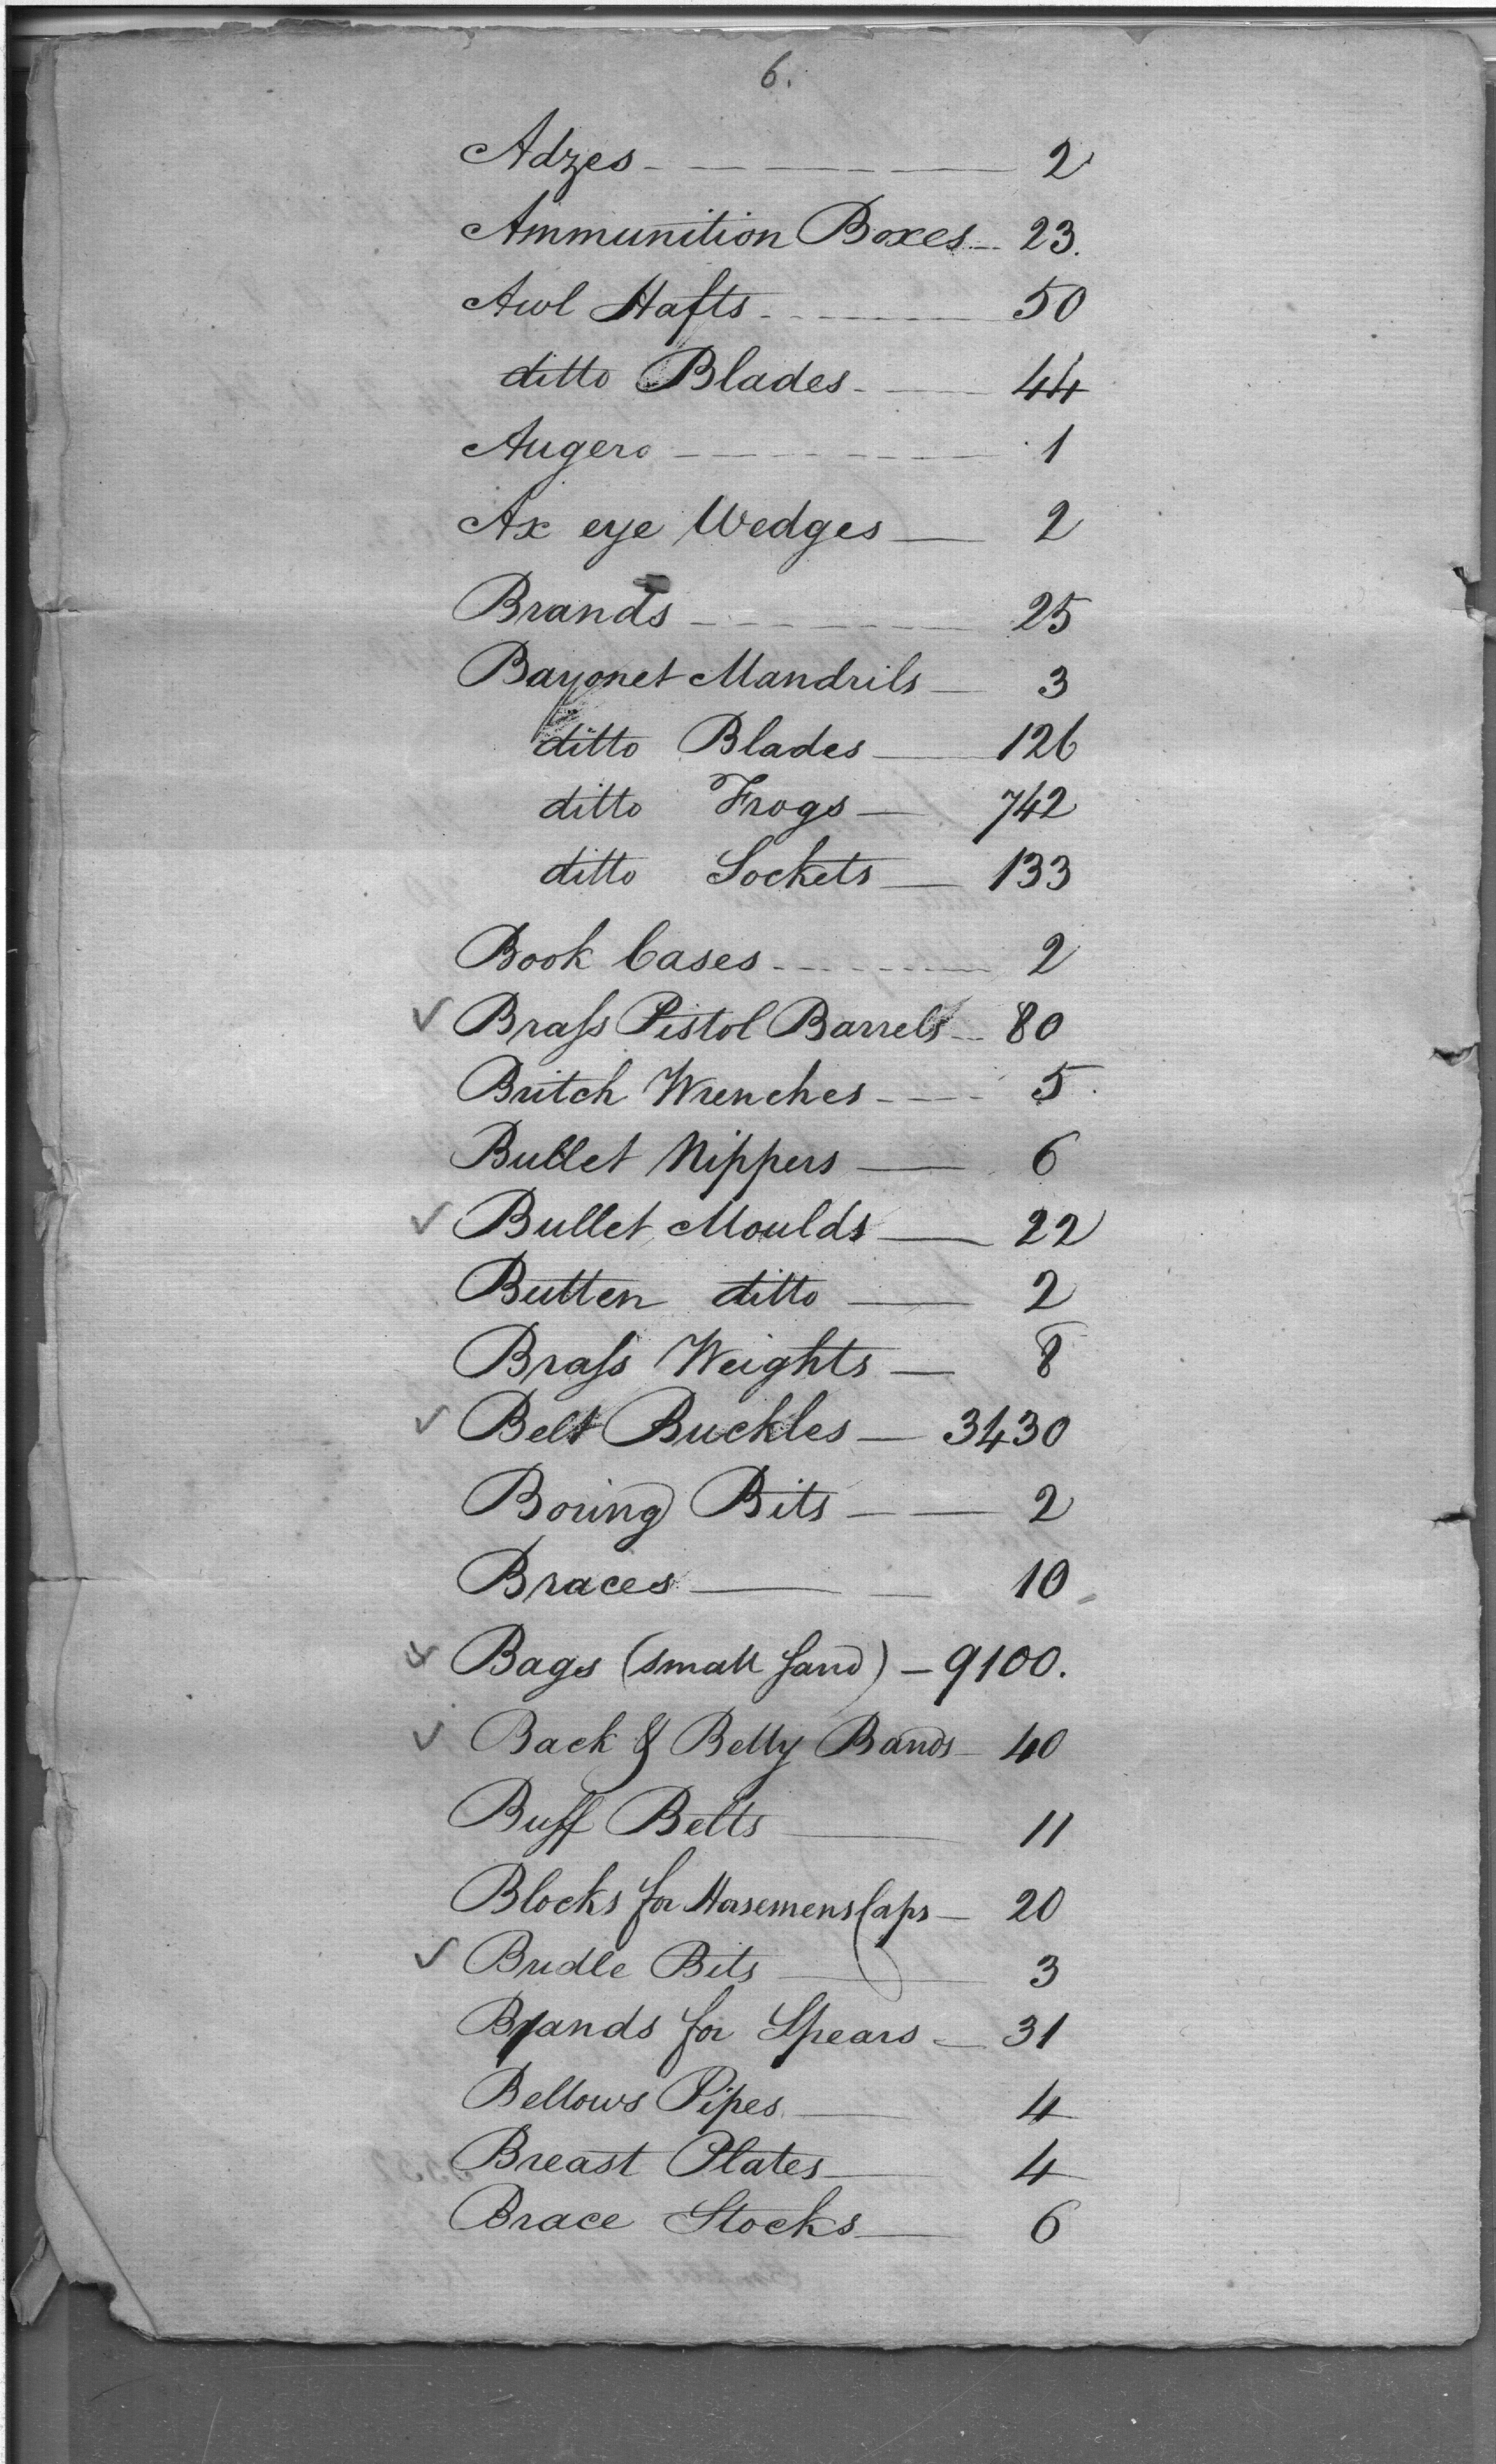 6.
Adzes - - - - - 2
Ammunition Boxes - 23.
Awl Hafts - - - - 50
ditto Blades - - 44
Augers - - - - - 1
Ax eye Wedges - 2
Brands - - - - - 25
Bayonet Mandrils - 3
ditto Blades - 126
ditto Frogs - 742
ditto Sockets - 133
Book Cases - - - - 2
✓ Braſs Pistol Barrels - 80
Britch Wrenches - - - 5.
Bullet Nippers - 6
✓ Bullet Moulds - 22
Butten ditto - 2
Braſs Weights - 8
✓ Belt Buckles - 3430
Boring Bits - - 2
Braces - - 10
✓ Bags (small ſand) - 9100.
✓ Back & Belly Bands - 40
Buff Belts - 11
Blocks for Horsemens Caps - 20
✓ Bridle Bits - 3
Brands for Spears - 31
Bellows Pipes - 4
Breast Plates - 4
Brace Stocks - 6